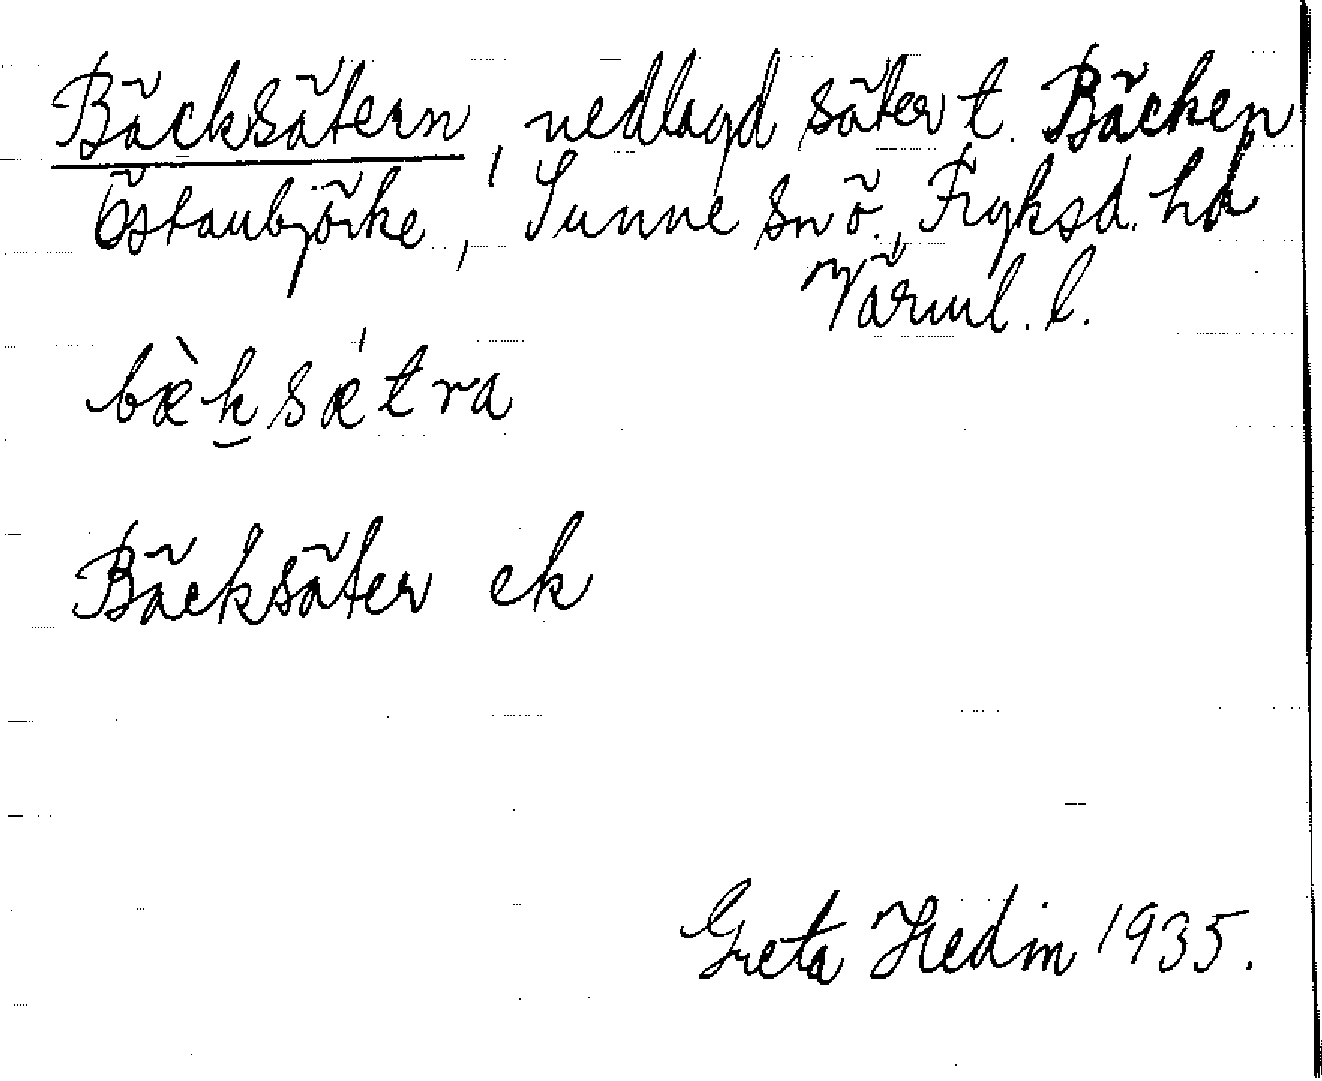 Bäcksätern, nedlagd säter t. Bäcken
Östanbjörke, Sunne sn ö., Fryksd. hd
Värml. l.
bæ̀ksǽtra
Bäcksäter ek
Greta Hedin 1935.